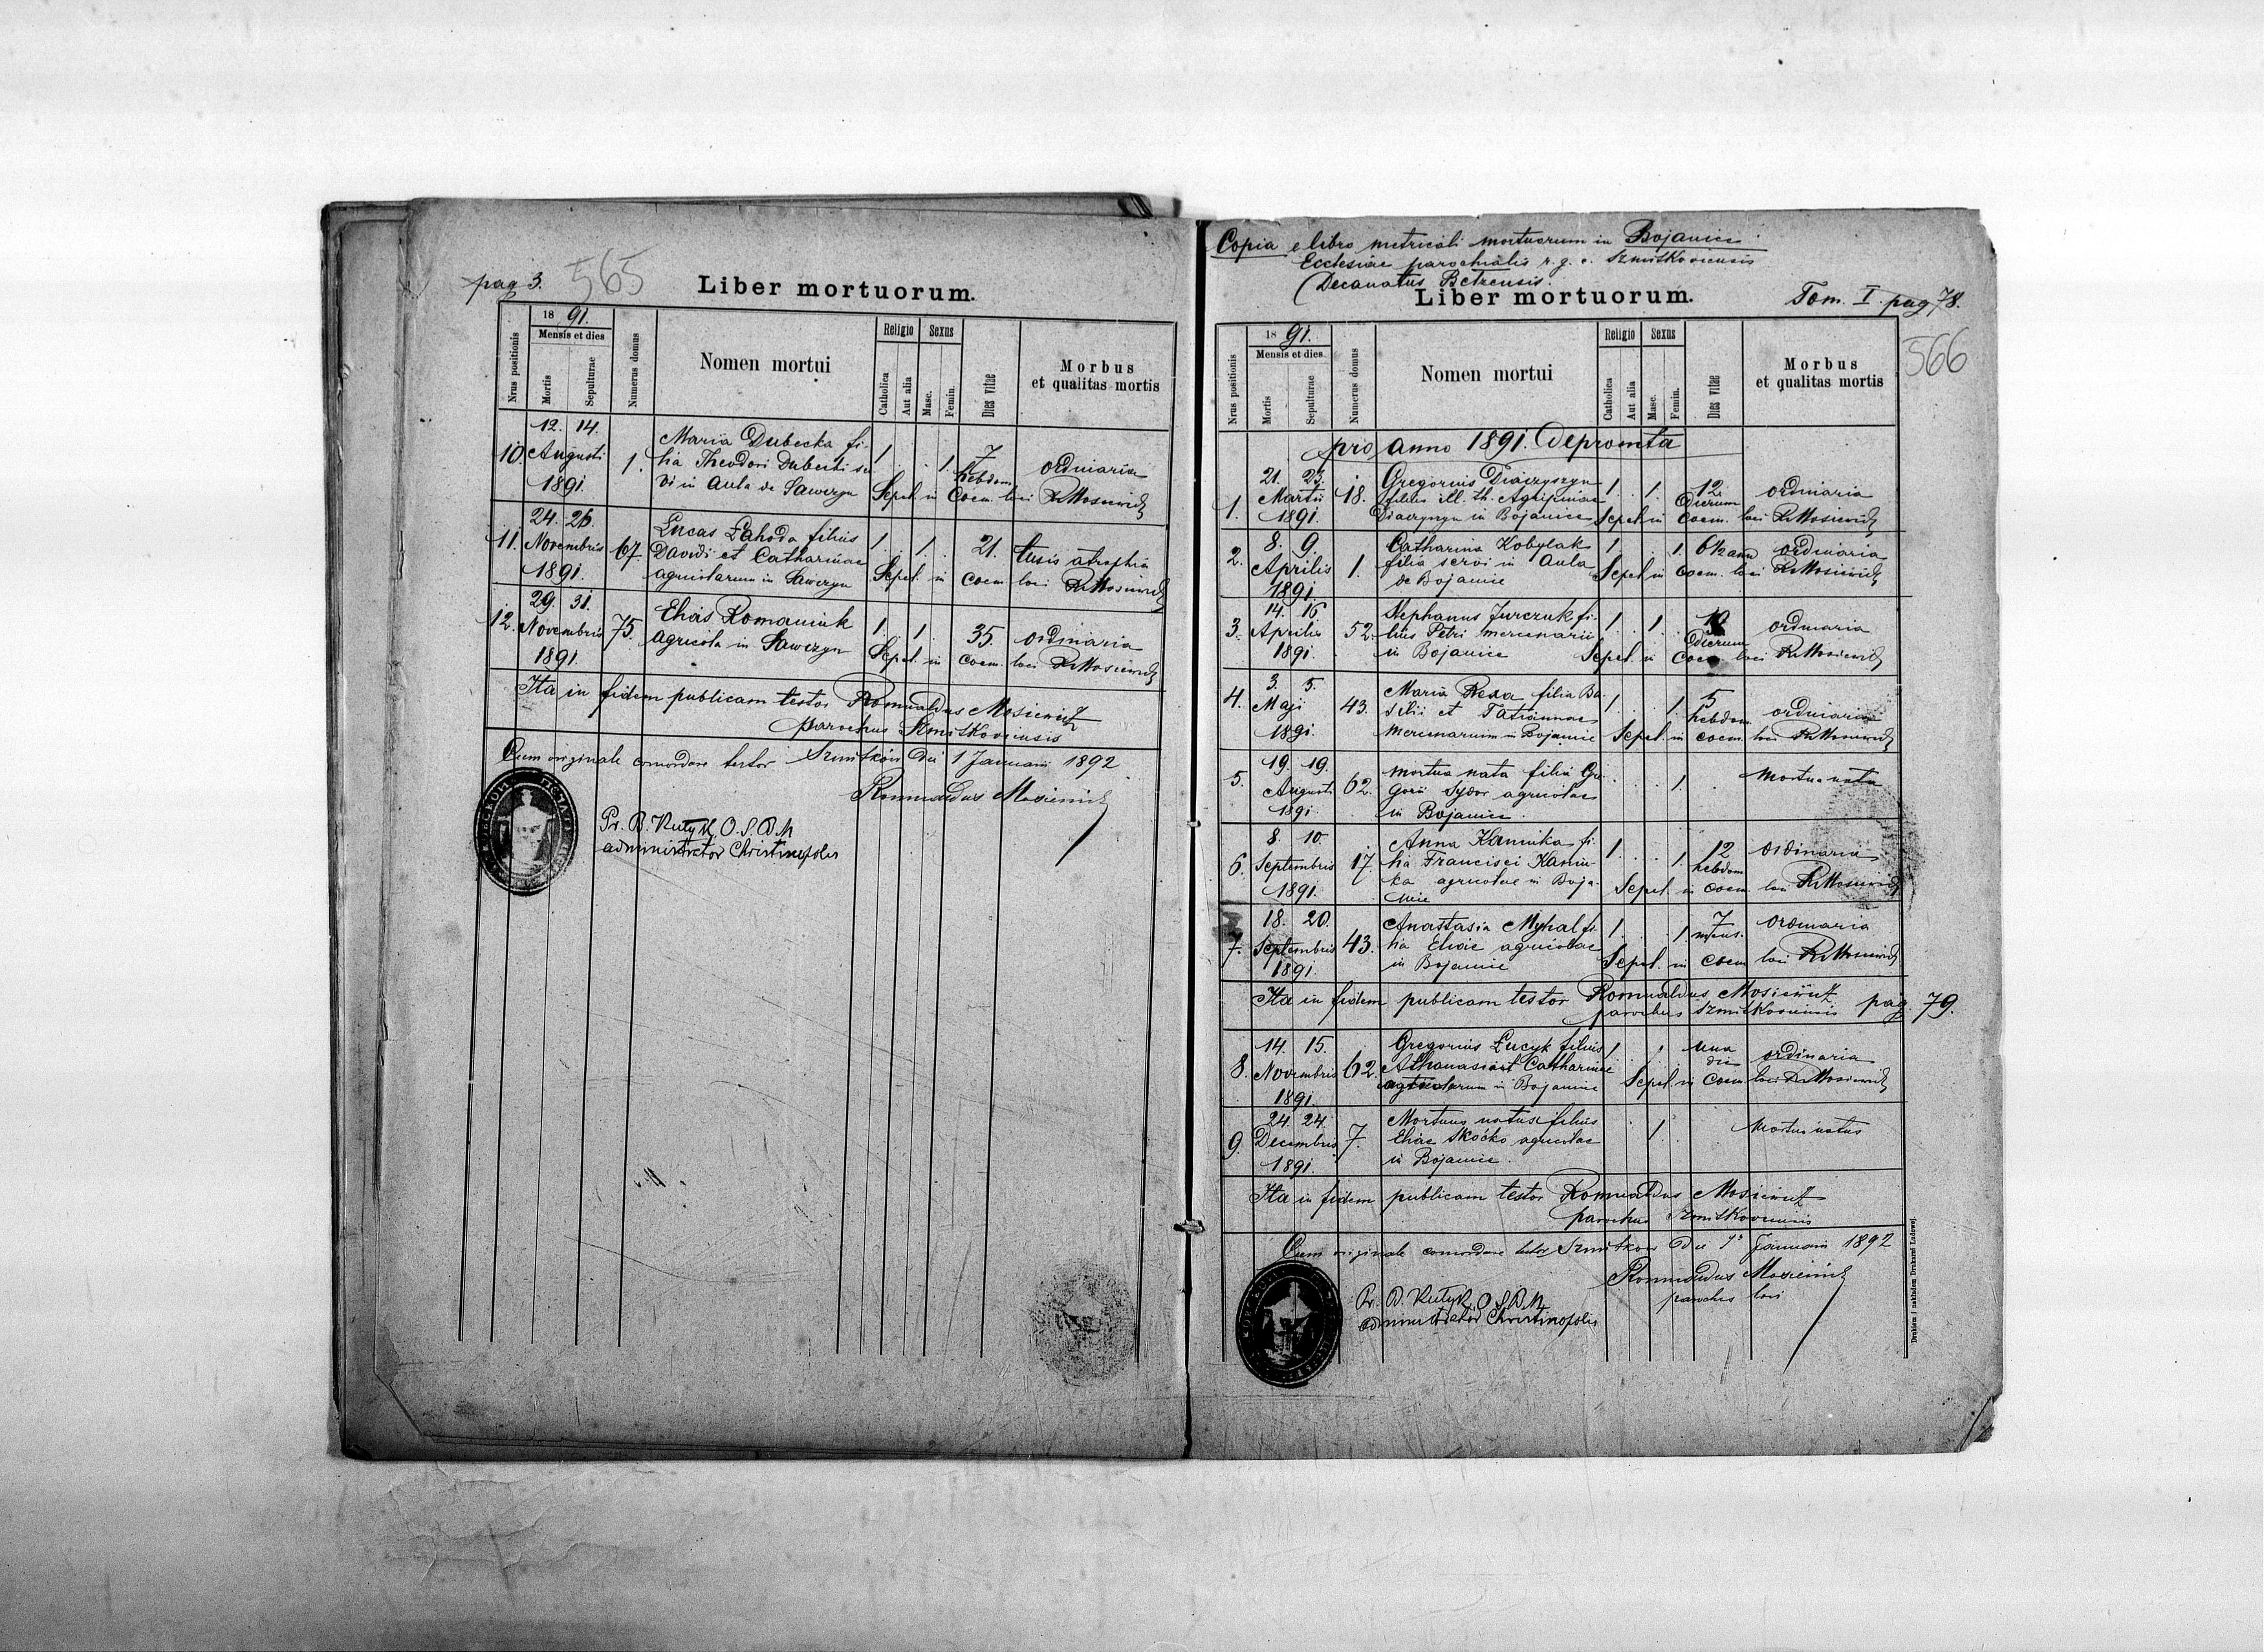 pag 3. 565
Liber mortuorum.
Nrus positionis
18 91.
Mensis et dies
Mortis
Sepulturae
Numerus domus
Nomen mortui
Religio
Catholica
Aut alia
Sexus
Masc.
Femin.
Dies vitae
Morbus
et qualitas mortis
10. 12. 14. Augusti 1891. 1.
Maria Dubecka fi-
lia Theodori Dubecki ser
vi in Aula de Sawczyn
1. 1. 7 hebdom ordinaria
Sepel. in Coem. loci R Mosiewicz
11. 24. 26. Novembris 1891. 67.
Lucas Zahoda filius
Davidi et Catharinae
agricolarum in Sawczyn
1. 1. 21. tusis atrophia
Sepel. in coem. loci R Mosiewicz
12. 29. 31. Novembris 1891. 75.
Elias Romaniuk
agricola in Sawczyn
1. 1. 35. ordinaria
Sepel. in coem. loci R Mosiewicz
Ita in fidem publicam testor Romualdus Mosiewicz
parochus Szmitkoviensis
Cum originale concordare testor Szmitków die 1 Januarii 1892
Romualdus Mosiewicz
Pr. B. Kutyk, O.S.B.M
administrator Christinopolis
Copia e libro metricali mortuorum in Bojanice
Ecclesiae parochialis r. g. c. Szmitkoviensis
Decanatus Belzensis.
Liber mortuorum.
Tom. I. pag 78.
566
Nrus positionis
18 91.
Mensis et dies
Mortis
Sepulturae
Numerus domus
Nomen mortui
Religio
Catholica
Aut alia
Sexus
Masc.
Femin.
Dies vitae
Morbus
et qualitas mortis
pro anno 1891. depromta
1. 21. 23. Martii 1891. 18.
Gregorius Diaczyszyn
filius ill. th. Agripinae
Diaczyszyn in Bojanice
1. 1. 12. Dierum ordinaria
Sepel. in Coem. loci R Mosiewicz
2. 8. 9. Aprilis 1891. 1.
Catharina Kobylak
filia servi in Aula
de Bojanice
1. 1. 6½ ann ordinaria
Sepel in Coem. loci R Mosiewicz
3. 14. 16 Aprilis 1891. 52.
Stephanus Jurczuk fi-
lius Petri mercenarii
in Bojanice
1. 1. Dierum ordinaria
Sepel. in Coem. loci R Mosiewicz
4. 3. 5. Maji 1891. 43.
Maria Rexa filia Ba-
silii et Tatiannae
mercenarium in Bojanice
1. 1. 5 hebdom. ordinaria
Sepel. in coem. loci R Mosiewicz
5. 19. 19. Augusti 1891. 62.
mortua nata filia Gre
gorii Sydor agricolae
in Bojanice.
1. Mortua nata
6. 8. 10. Septembris 1891. 17.
Anna Kaminka fi-
lia Francisci Kamin-
ka agricolae in Boja-
nice
1. 1. 12 hebdom ordinaria
Sepel. in Coem. loci R Mosiewicz
7. 18. 20. Septembris 1891. 43.
Anastasia Myhal fi-
lia Eliae agricolae
in Bojanice
1. 1 7 mens. ordinaria
Sepel. in Coem loci R Mosiewicz
Ita in fidem publicam testor Romualdus Mosiewicz pag. 79.
parochus Szmitkoviensis
8. 14. 15. Novembris 1891. 62.
Gregorius Łucyk filius
Athanasii et Catharinae
agricolarum in Bojanice
1. Una die ordinaria
Sepel. in Coem loci R Mosiewicz
9. 24. 24. Decembris 1891. 7.
Mortuus natus filius
Eliae Skoćko agricolae
in Bojanice.
1. Mortuus natus
Ita in fidem publicam testor Romualdus Mosiewicz
parochus Szmitkoviensis
Cum originale concordare testor Szmitków die 1 Januarii 1892
Romualdus Mosiewicz
parochus loci
Pr. B. Kutyk, O.S.B.M
administrator Christinopolis
Drukiem i nakładem Drukarni Ludowej.